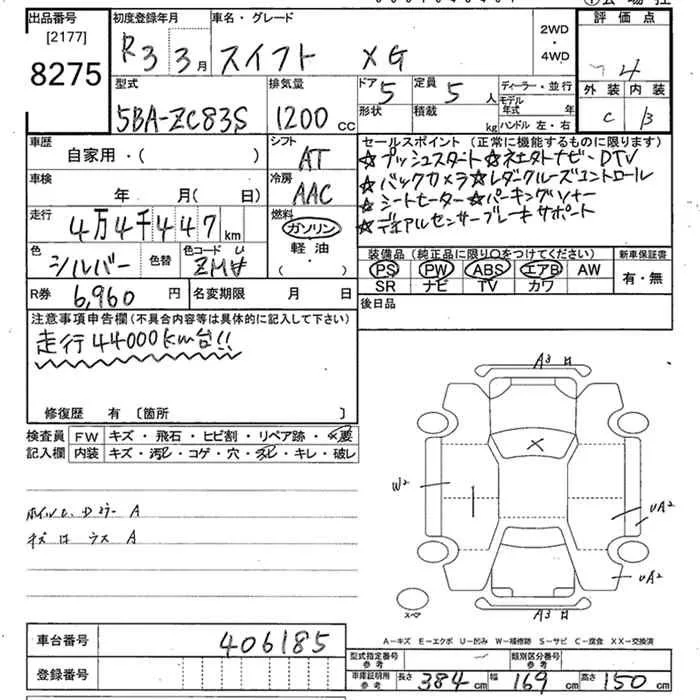 出品番号 初度登録年月 車名・グレード 2WD ・ 4WD 評価点
[2177]
8275 R3 3月 スイフト XG 4
型式 排気量 ドア 定員 ディーラー・並行 外装 内装
5BA-ZC83S 1200 cc 5 5人 モデル年式 年 C B
形状 積載 kg ハンドル 左・右
車歴 シフト セールスポイント(正常に機能するものに限ります)
自家用・( ) AT ☆プッシュスタート☆ネエタトナビ・DTV
車検 冷房 ☆バックカメラ☆レダクルーズコントロール
年 月( 日) AAC ☆シートヒーター☆パーキングソナー
走行 4万4千447km 燃料 ☆デュアルセンサーブレーキサポート
ガソリン
軽油
( ・ )
色 シルバー 色替 色コード U ZMV 装備品(純正品に限り○をつけてください) 新車保証書
PS PW ABS エアB AW 有・無
SR ナビ TV カワ
R券 6,960円 名変期限 月 日 後日品
注意事項申告欄(不具合内容等は具体的に記入して下さい)
走行44000km台!!
修復歴 有 〔箇所 〕
検査員 FW キズ・飛石・ヒビ割・リペア跡・×要
記入欄 内装 キズ・汚レ・コゲ・穴・スレ・キレ・破レ
A3
W2
UA2
UA2
A3
スペア
A
キズ ハ ウス A
A-キズ E-エクボ U-凹み W-補修跡 S-サビ C-腐食 XX-交換済
車台番号 406185
型式指定番号 参考 類別区分番号 参考
登録番号 車庫証明用 参考 長さ 384cm 幅 169cm 高さ 150cm